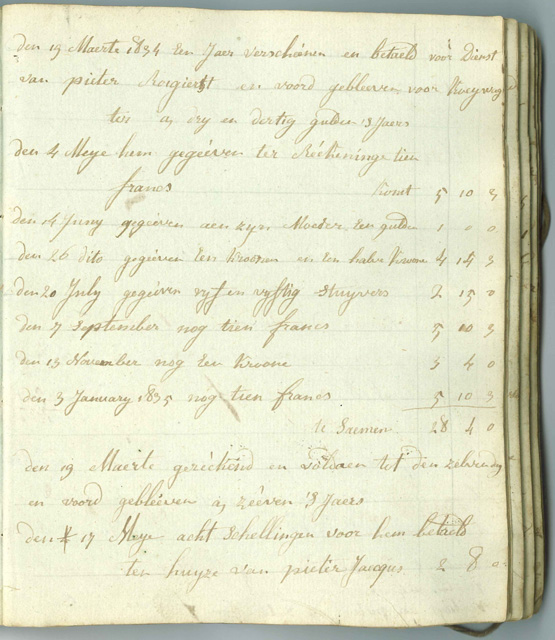 den 19 Maerte 1834 Een Jaer verschenen en betaeld voor Dienst
van pieter en voord gebleeven voor
a drij en dertig gulden 's Jaers
den 4 Meye hem gegeéven ter Réékeninge tien
francs Komt 5 10 3
den 14 Juny gegeéven aen zyn Moeder Een gulden 1 0 0
den 26 dito gegeéven Een Kroone en een halve Kroone 4 15 3
den 20 July gegeéven vyf en vyftig Stuyvers 2 15 0
den 7 September nog tien francs 5 10 3
den 13 November nog Een Kroone 3 4 0
den 3 January 1835 nog tien francs 5 10 3
te Saemen 28 4 0
den 19 Maerte geréékend en voldaen tot den zelven dag
en voord gebleéven a zéeven 's Jaers
den 17 Meye acht Schellingen voor hem betaeld
ten huyze van pieter Jacqus 2 8 0